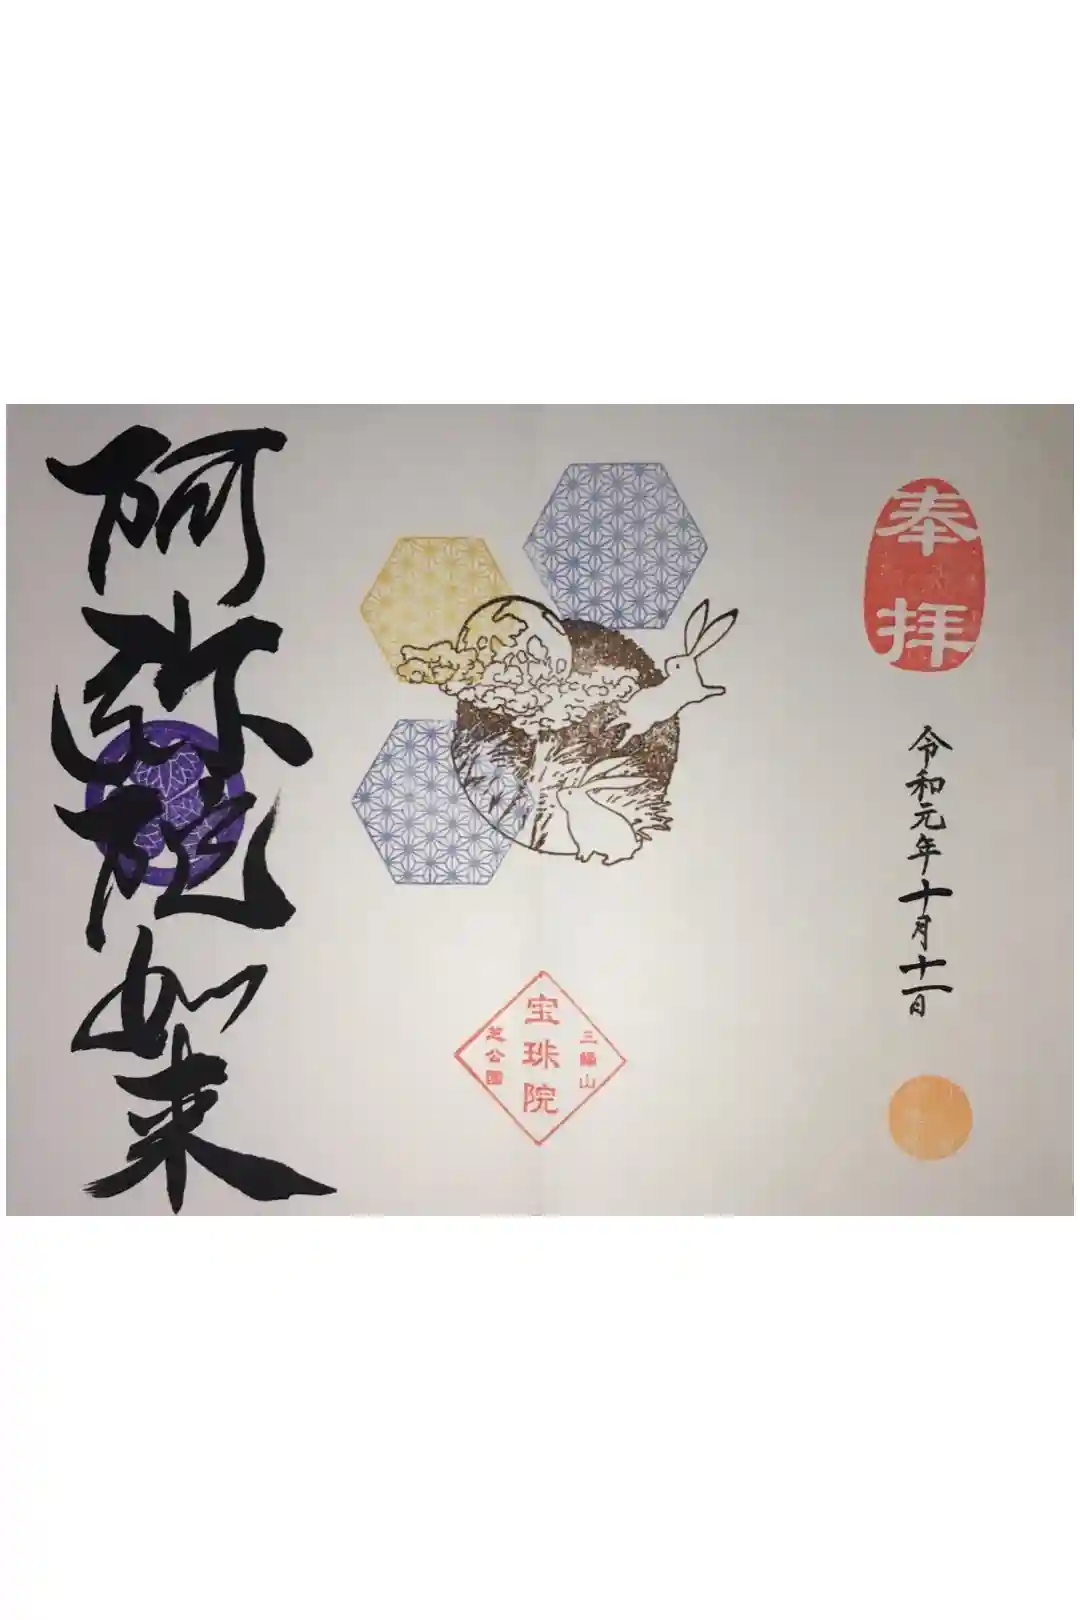 奉拝
令和元年十月十一日
三縁山
宝珠院
芝公園
阿弥陀如来